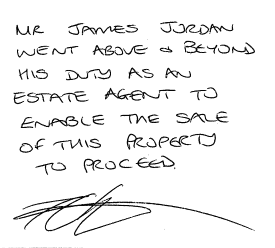 MR JAMES JORDAN
WENT ABOVE & BEYOND
HIS DUTY AS AN
ESTATE AGENT TO
ENABLE THE SALE
OF THIS PROPERTY
TO PROCEED.